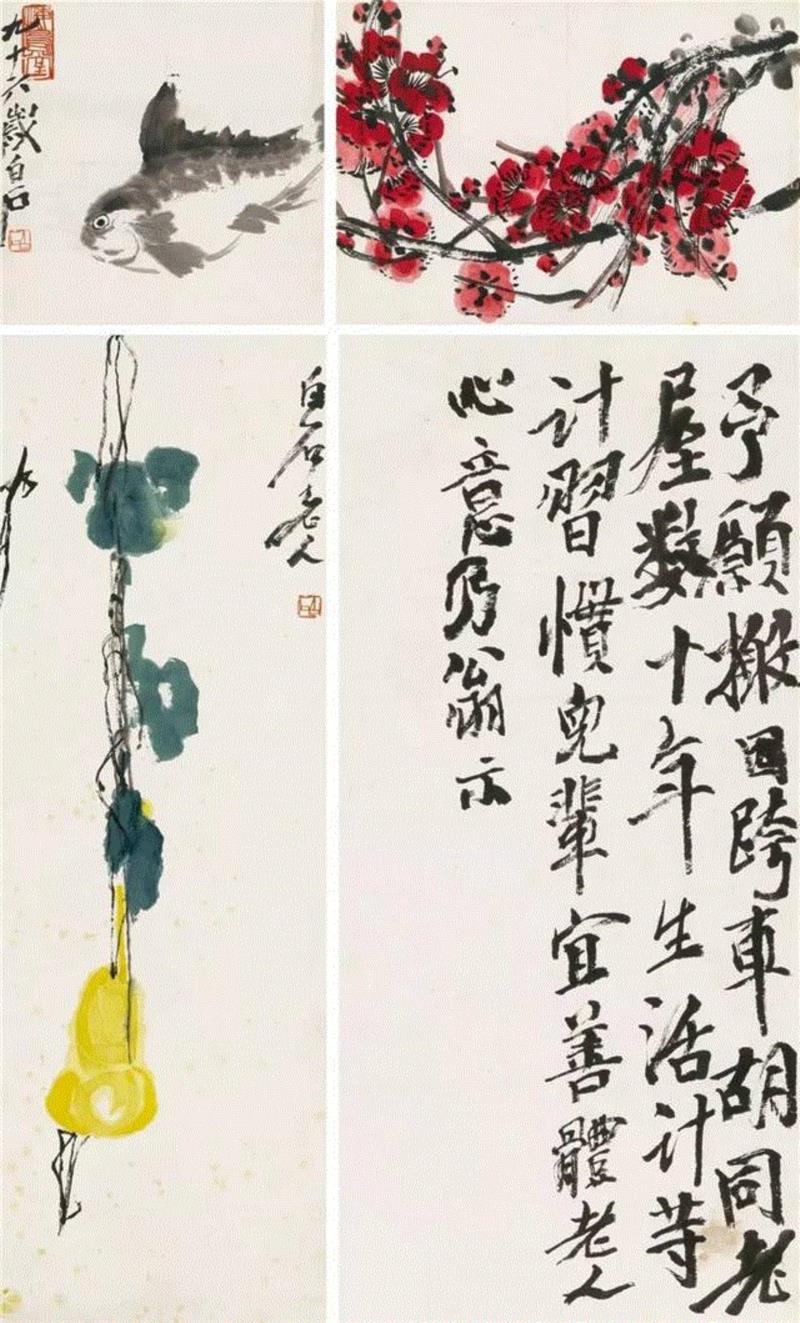 九十六歲白石
白石老人
予願搬回跨車胡同老
屋數十年生活計等
計習慣兒輩宜善體老人
心意乃翁示